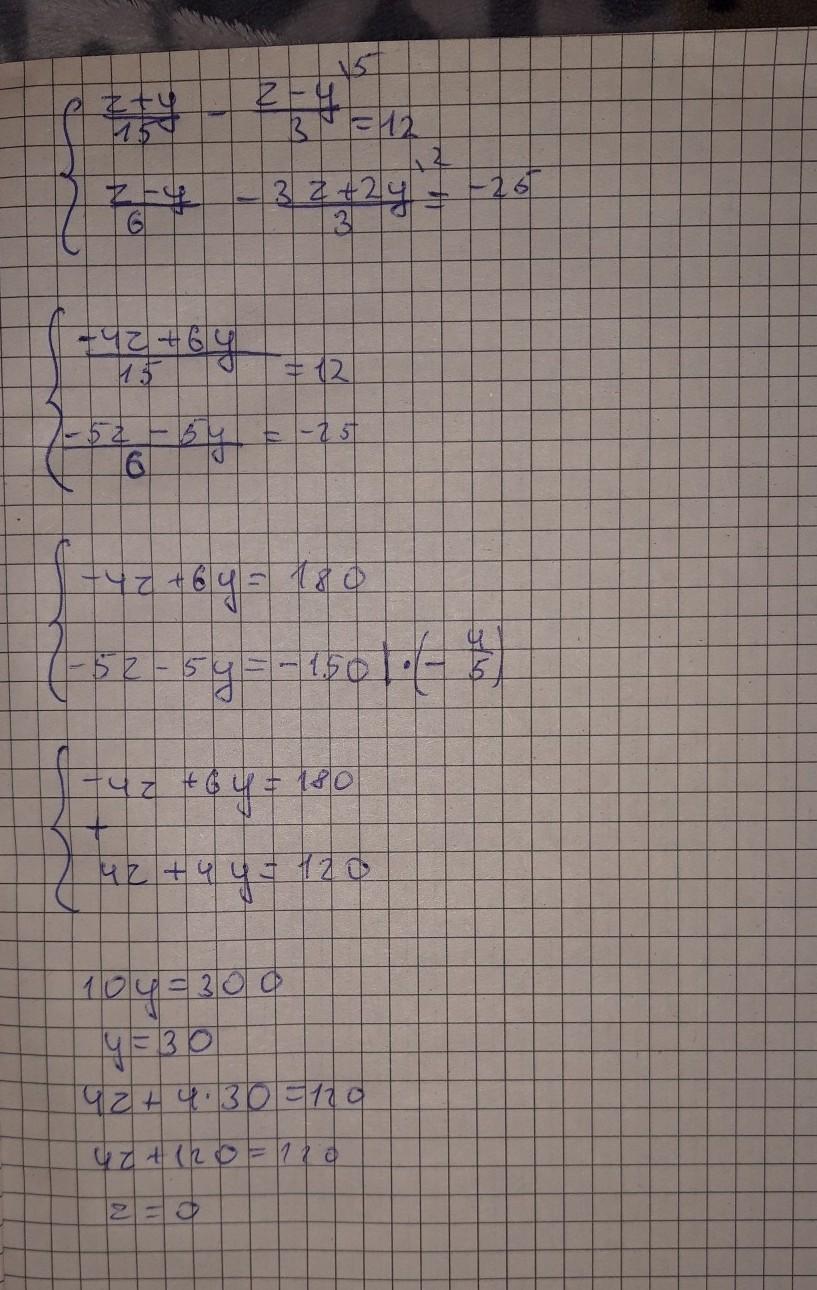 { z+y/15 - z-y\5/3 = 12
z-y/6 - 3z+2y\2/3 = -25
{ -4z+6y/15 = 12
-5z-5y/6 = -25
{ -4z+6y= 180
-5z-5y=-150|·(-4/5)
{ -4z+6y=180
+
4z+4y=120
10y=300
y=30
4z+4·30=120
4z+120=120
z=0